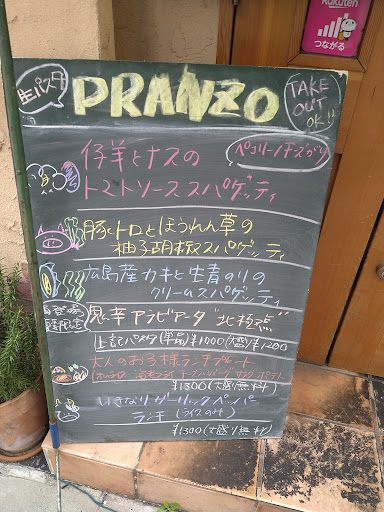 Rakuten
つながる
生パスタ
PRANZO
TAKE OUT OK!!
仔羊とナスの
ペコリーノチーズがけ
トマトソーススパゲッティ
豚トロとほうれん草の
柚子胡椒スパゲッティ
広島産カキと生青のりの
クリームスパゲッティ
鬼辛アラビアータ"北極点"
上記パスタ(単品)¥1000(大盛)¥1200
大人のお子様ランチプレート
¥1300(大盛り無料)
いきなりガーリックペッパー
ランチ(ライスのみ)
¥1300(大盛り無料)